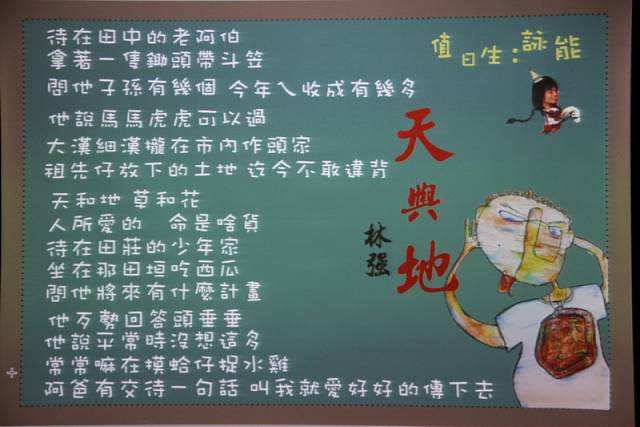 待在田中的老阿伯
拿著一隻鋤頭帶斗笠
問他子孫有幾個 今年ㄟ收成有幾多
他說馬馬虎虎可以過
大漢細漢攏在市內作頭家
祖先仔放下的土地 迄今不敢違背
天和地 草和花
人所愛的 命是啥貨
待在田莊的少年家
坐在那田垣吃西瓜
問他將來有什麼計畫
他歹勢回答頭垂垂
他說平常時沒想這多
常常嘛在摸蛤仔捉水雞
阿爸有交待一句話 叫我就愛好好的傳下去
值日生:詠能
天與地
林強